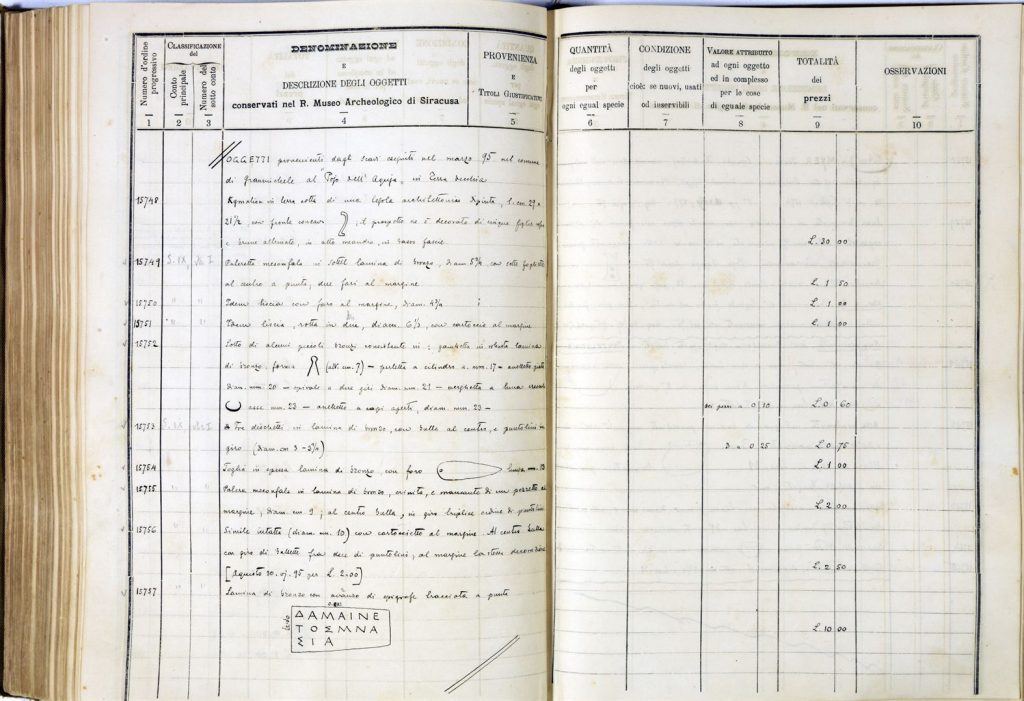 Numero d'ordine progressivo
1
CLASSIFICAZIONE
del
Conto principale
2
Numero del sotto conto
3
DENOMINAZIONE
E
DESCRIZIONE DEGLI OGGETTI
conservati nel R. Museo Archeologico di Siracusa
4
PROVENIENZA
E
TITOLI GIUSTIFICATIVI
5
QUANTITÀ
degli oggetti
per
ogni egual specie
6
CONDIZIONE
degli oggetti
cioè: se nuovi, usati
od inservibili
7
VALORE ATTRIBUITO
ad ogni oggetto
ed in complesso
per le cose
di eguale specie
8
TOTALITÀ
dei
prezzi
9
OSSERVAZIONI
10
OGGETTI provenienti dagli scavi eseguiti nel marzo 95 nel comune
di Grammichele al "Poso dell'Aquila" in Terra Vecchia
15748
in terra cotta di una architettonica dipinta, l. cm. 29 a
21½, con fronte il prospetto ne è decorato di cinque
e brune alternate, in alto meandro, in basso fascie.
L. 30 00
15749 S. IX
mesonfala in sottil lamina di bronzo, diam. con sette
al centro a punta, due fori al margine
L. 1 50
15750 " "
Idem liscia con foro al margine, diam.
L. 1 00
15751 " "
Idem liscia, rotta in due, diam. 6½, con cartoccio al margine
L. 1 00
15752
Lotto di alcuni piccoli bronzi consistente in: in robusta lamina
di bronzo, forma (alt. cm. 7) – perletta a cilindro a mm. 17 –
diam. mm. 20 – spirale a due giri diam. mm. 21 – a luna crescente
asse mm. 23 – anelletto a capi aperti, diam. mm. 23 –
sei pezzi a 0 10 L. 0 60
15753 S. IX
Tre dischetti in lamina di bronzo, con bulla al centro, e puntolini in
giro (diam. cm 3 – 3¾)
3 a 0 25 L. 0 75
15754 " "
Foglia in spessa lamina di bronzo, con foro
L. 1 00
15755 " "
Patera mesonfala in lamina di bronzo, e mancante di un pezzetto al
margine, diam. cm 9; al centro bulla, in giro triplice ordine di puntolini
L. 2 00
15756 " "
Simile intatta (diam. cm. 10) con cartoccietto al margine. Al centro bulla
con giro di bullette fra due di puntolini; al margine la stessa decorazione
[Acquisto 20. 95 per L. 2.00]
L. 2 50
15757 " "
Lamina di bronzo con avanzo di epigrafe tracciata a punti
ΔAMAINE
TOΣMNA
ΣIA
L. 10 00